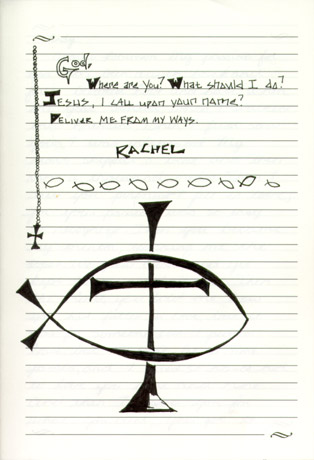 God,
Where are you? What should I do?
Jesus, I call upon your name?
Deliver me from my ways.
Rachel